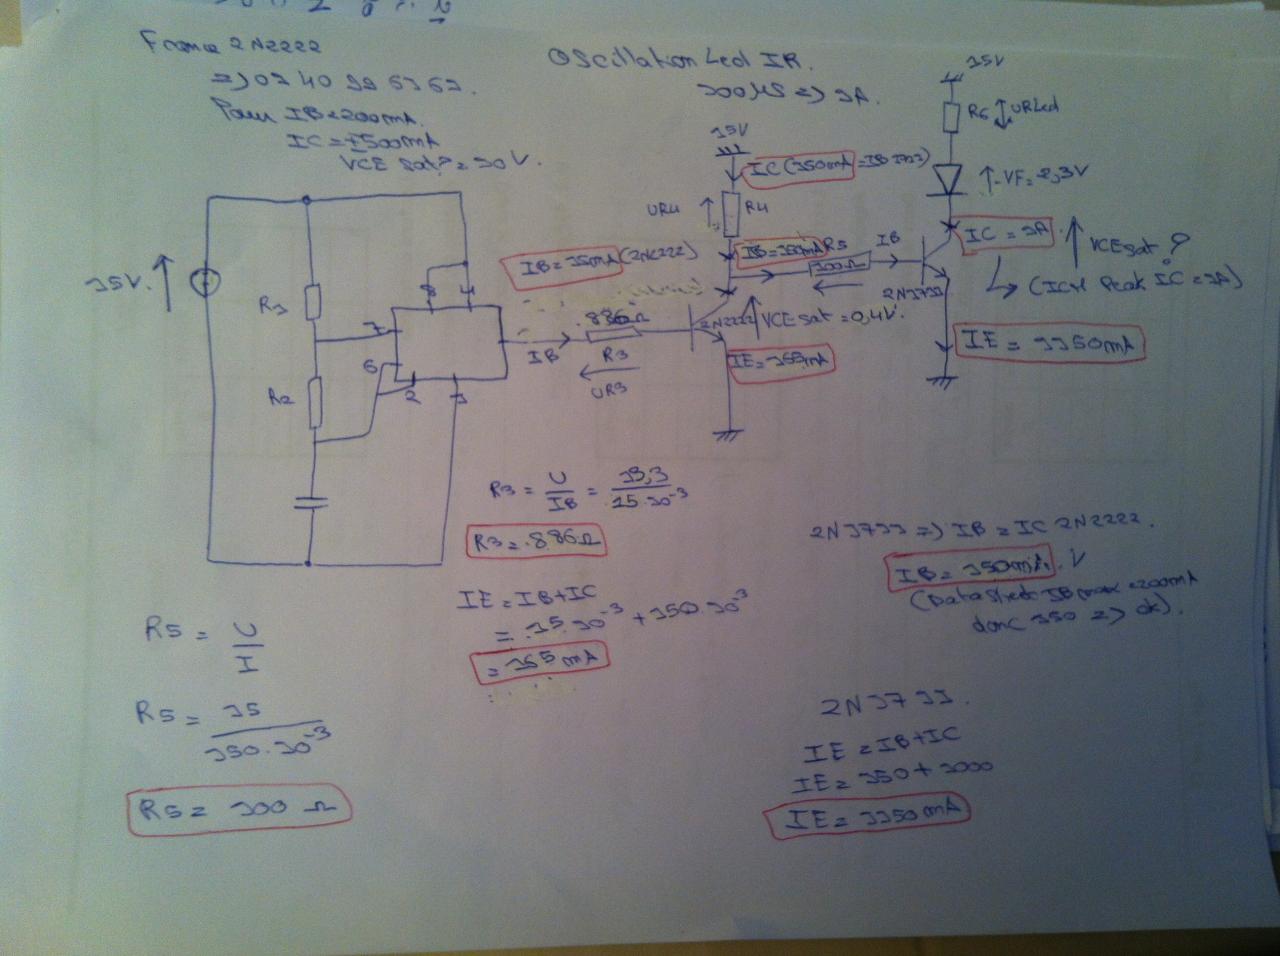 OScillation Led IR.
=) 02 40
Pour IB=200mA.
IC=+500mA
15V
R6 URLed
15V
IC(150mA=IB
UR4 R4
-VF=2,3V
IB=15mA(2N2222)
IB=150mA R5 IB
IC=1A
VCE sat ?
15V.
R1
8 4
100Ω
(ICM Peak IC=1A)
886Ω
2N2222 VCE sat=0,4V.
7
IB R3
UR3
IE=165mA
IE=1150mA
6
2 1
R2
R3 = U/IB = 13,3/15.10⁻³
R3=886Ω
2N3733 =) IB=IC 2N2222.
IB=150mA. V
(DataSheet IB max=200mA
donc 150 =) ok).
IE=IB+IC
= 15.10⁻³ + 150.10⁻³
= 165mA
R5 = U/I
R5 = 15/150.10⁻³
R5 = 100 Ω
2N3733.
IE=IB+IC
IE=150+1000
IE=1150mA